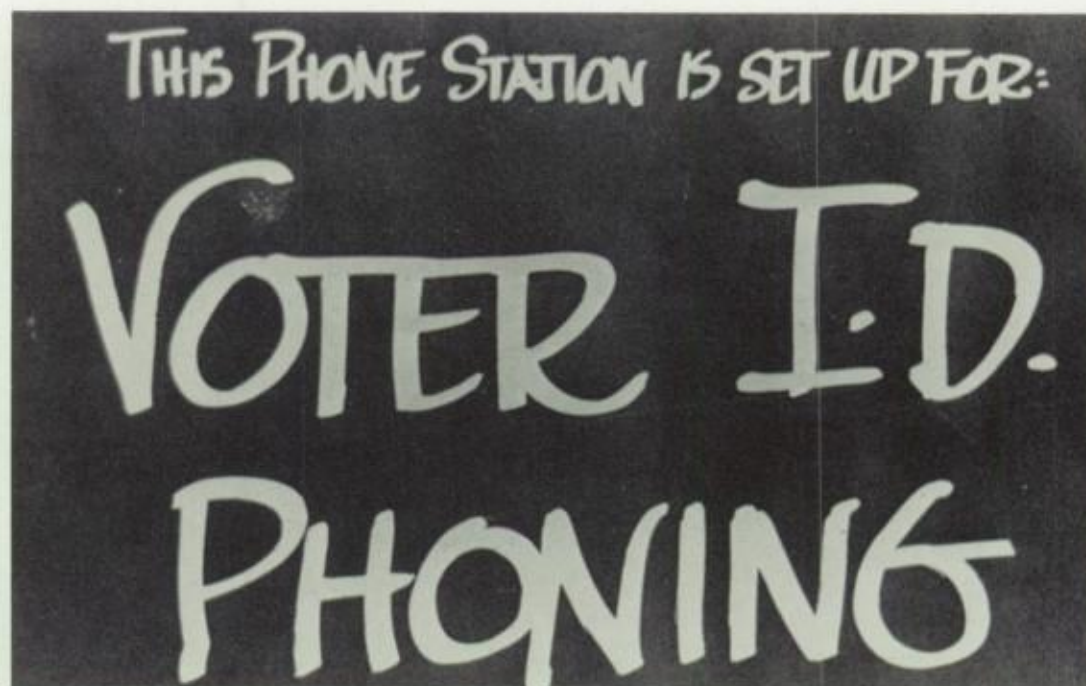 THIS PHONE STATION IS SET UP FOR:
VOTER I.D.
PHONING